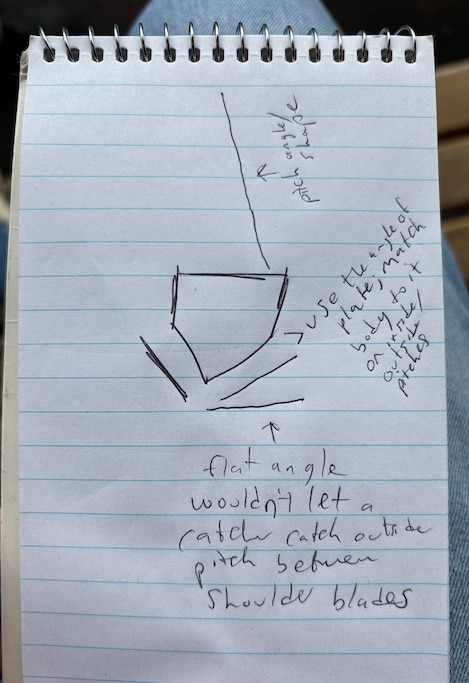 pitch angle/
shape
use the angle of
plate, match
body to it
on inside/
outside
pitches
flat angle
wouldn't let a
catcher catch outside
pitch between
shoulder blades